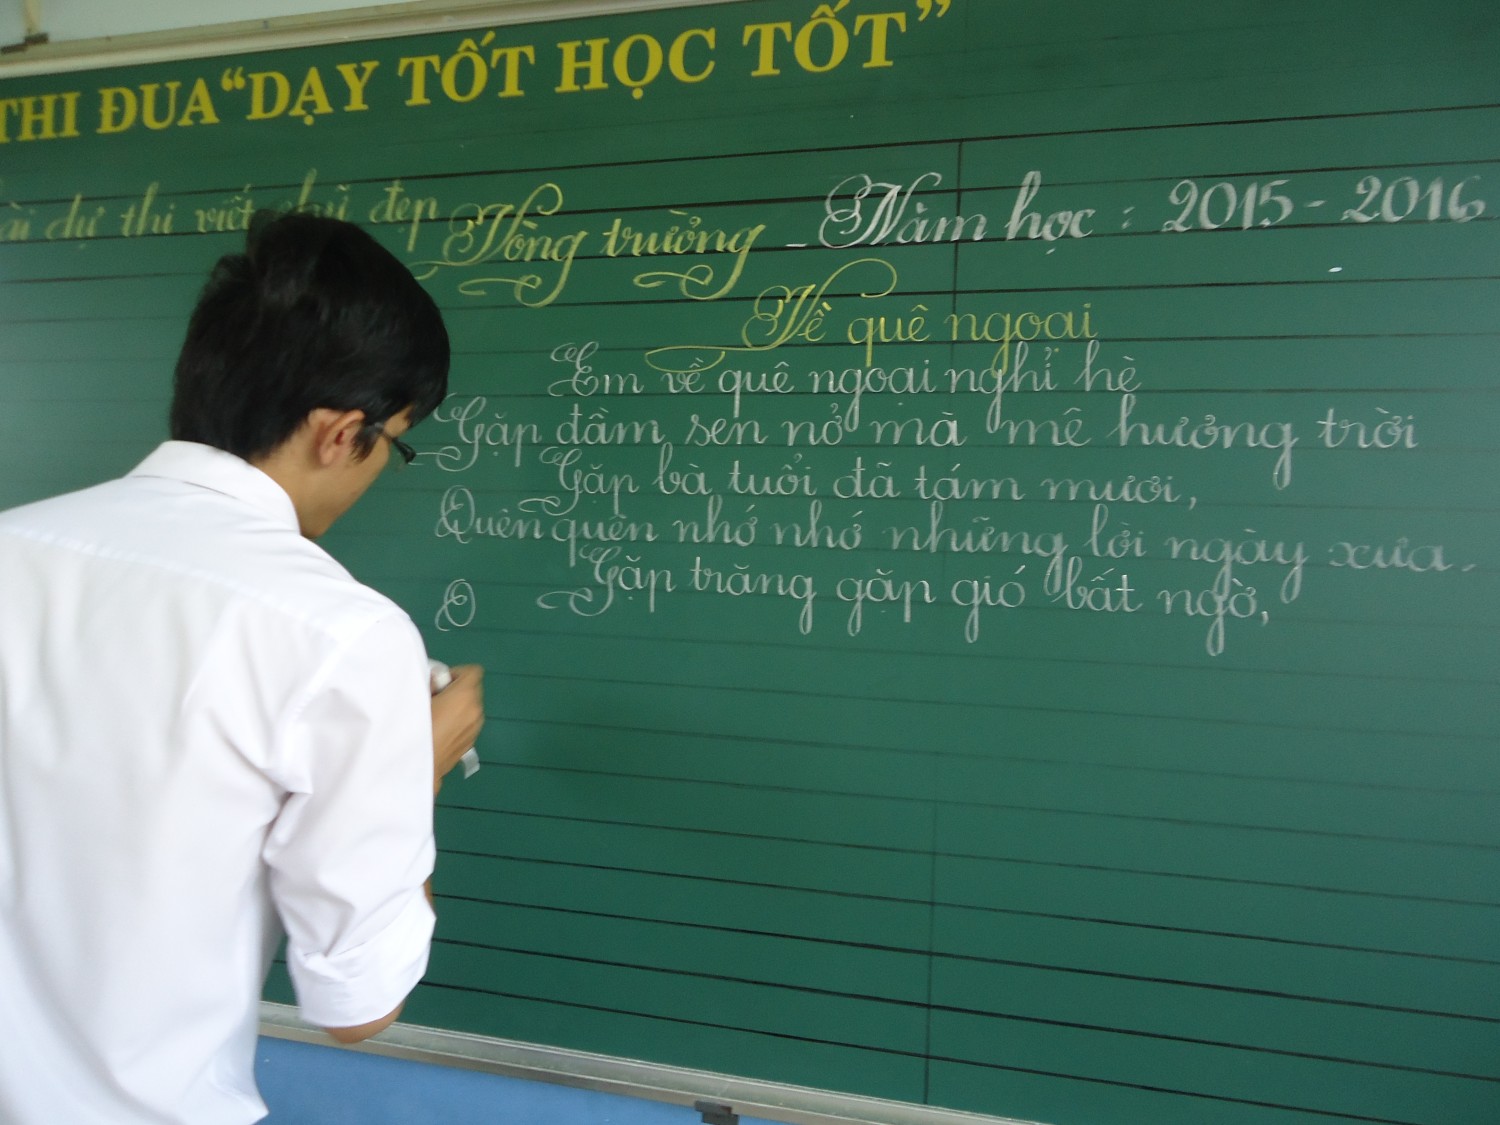 THI ĐUA "DẠY TỐT HỌC TỐT"
ài dự thi viết chữ đẹp Vòng trường - Năm học : 2015 - 2016
Về quê ngoại
Em về quê ngoại nghỉ hè
Gặp đầm sen nở mà mê hương trời
Gặp bà tuổi đã tám mươi,
Quên quên nhớ nhớ những lời ngày xưa.
Gặp trăng gặp gió bất ngờ,
O